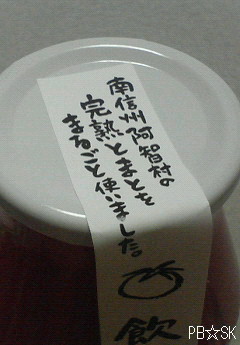 南信州阿智村の
完熟とまとを
まるごと使いました。
飲
PB☆SK